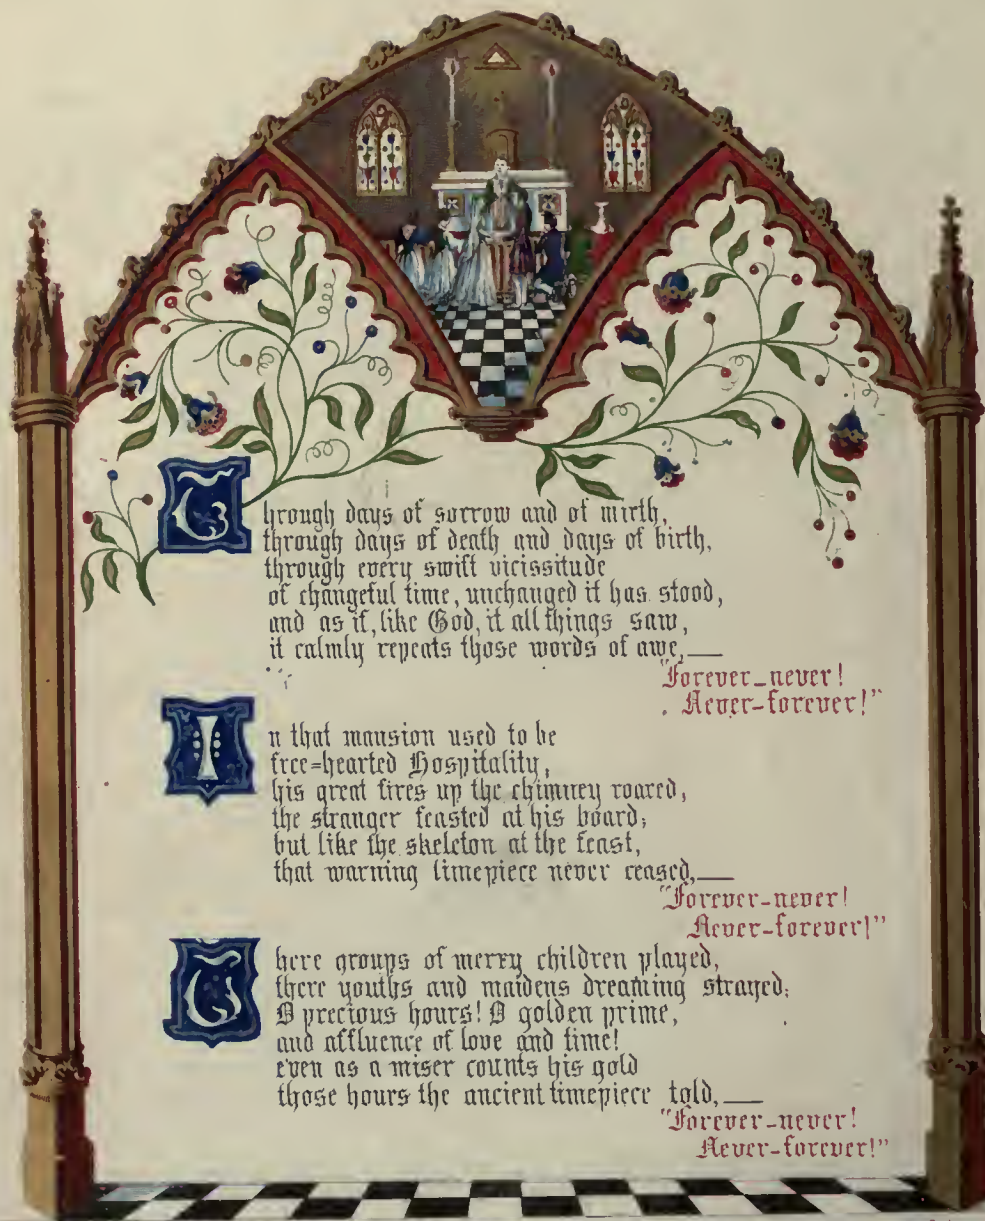 Through days of sorrow and of mirth,
through days of death and days of birth,
through every swift vicissitude
of changeful time, unchanged it has stood,
and as if, like God, it all things saw,
it calmly repeats those words of awe,—
"Forever-never!
Never-forever!"
In that mansion used to be
free=hearted Hospitality,
his great fires up the chimney roared,
the stranger feasted at his board;
but like the skeleton at the feast,
that warning timepiece never ceased,—
"Forever-never!
Never-forever!"
There groups of merry children played,
there youths and maidens dreaming strayed;
O precious hours! O golden prime,
and affluence of love and time!
even as a miser counts his gold
those hours the ancient timepiece told,—
"Forever-never!
Never-forever!"